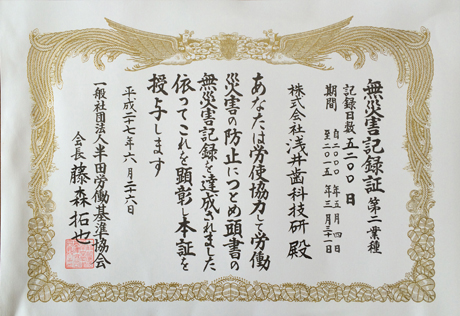 無災害記録証 第二業種
記録日数 五二〇〇日
期間 自二〇一〇年五月四日
至二〇一五年三月三十一日
株式会社浅井歯科技研 殿
あなたは労使協力して労働
災害の防止につとめ頭書の
無災害記録を達成されました
依ってこれを顕彰し本証を
授与します
平成二十七年六月二十六日
一般社団法人半田労働基準協会
会長 藤森拓也